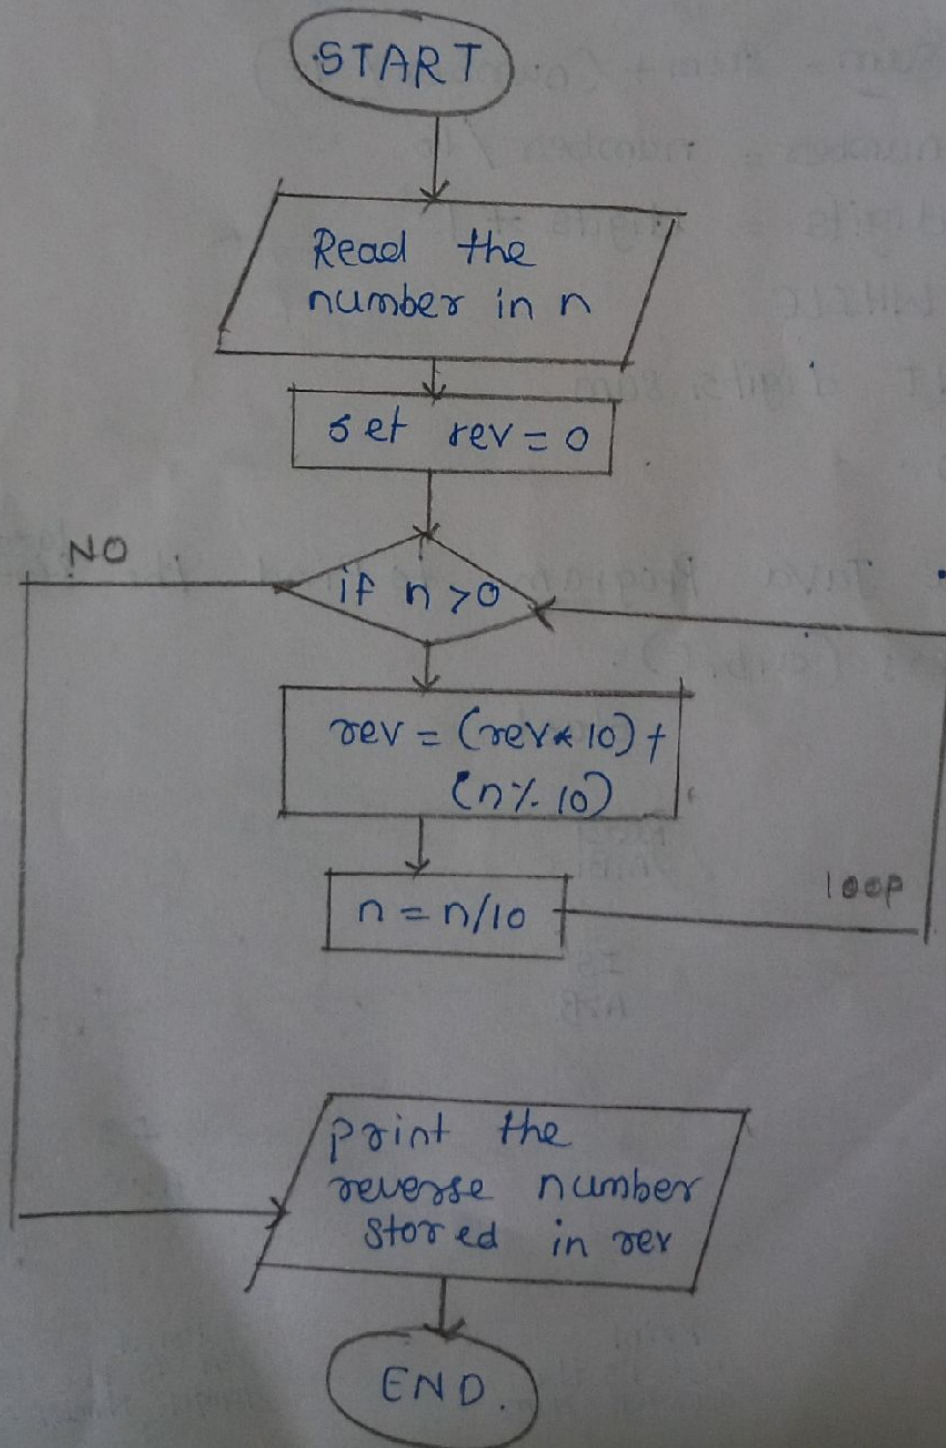 START
Read the
number in n
set rev = 0
NO
if n > 0
rev = (rev * 10) +
(n % 10)
n = n/10
loop
print the
reverse number
stored in rev
END.